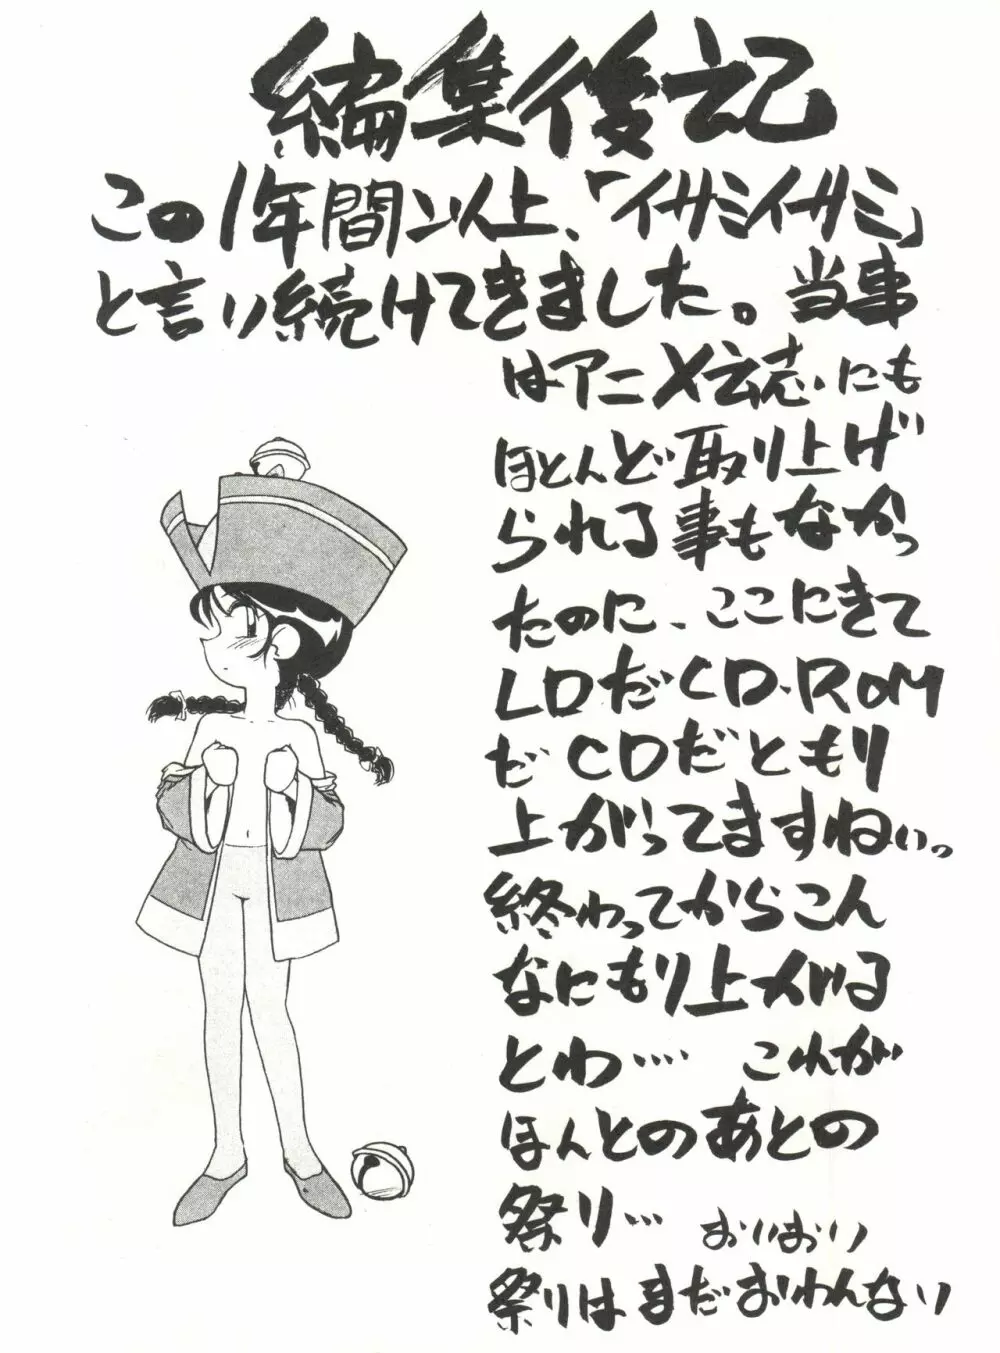 編集後記
この1年間以上、「イサミイサミ」
と言い続けてきました。当事
はアニメ雑誌にも
ほとんど取り上げ
られる事もなかっ
たのに、ここにきて
LDだCD-ROM
だCDだともり
上がってますねぃっ。
終わってからこん
なにもり上がる
とわ…. これが
ほんとのあとの
祭り… おいおい
祭りはまだおわんない